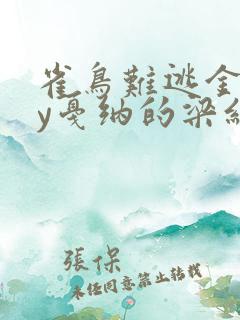 雀鳥難逃金
y戛纳的梁纟
張保
未经同意禁止转载